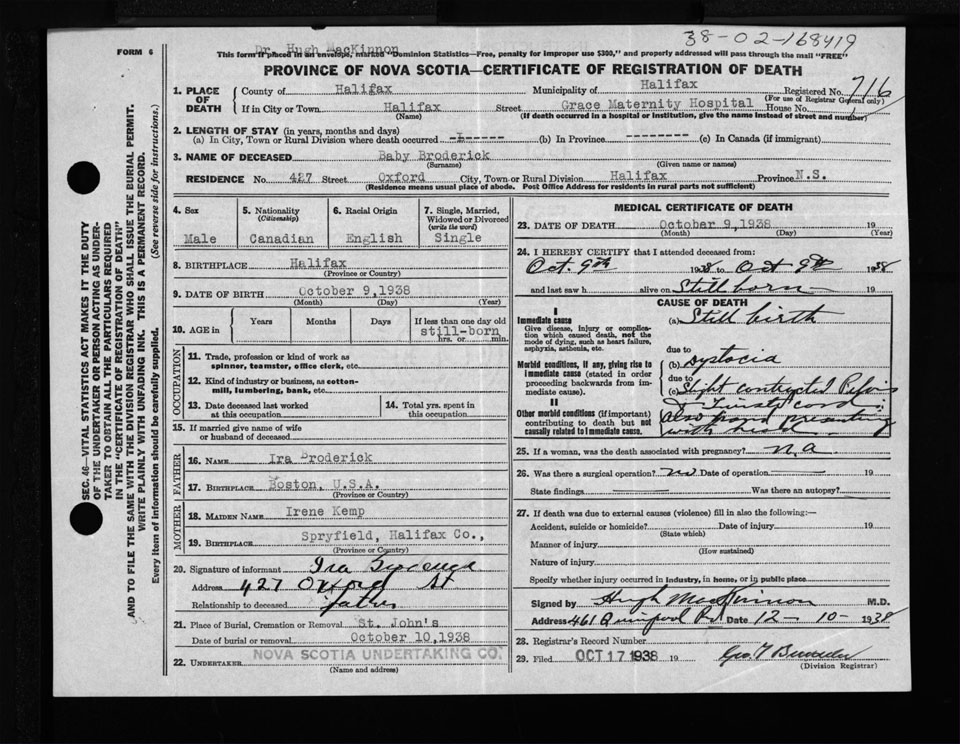 38-02-168419
FORM 6
Dr. Hugh MacKinnon
This form if placed in an envelope, marked "Dominion Statistics—Free, penalty for improper use $300," and properly addressed will pass through the mail "FREE"
PROVINCE OF NOVA SCOTIA—CERTIFICATE OF REGISTRATION OF DEATH
1. PLACE OF DEATH County of Halifax Municipality of Halifax Registered No. 716
(For use of Registrar General only)
If in City or Town Halifax Street Grace Maternity Hospital House No.
(Name) (If death occurred in a hospital or institution, give the name instead of street and number)
2. LENGTH OF STAY (in years, months and days)
(a) In City, Town or Rural Division where death occurred -1------ (b) In Province -------- (c) In Canada (if immigrant)
3. NAME OF DECEASED Baby Broderick
(Surname) (Given name or names)
RESIDENCE No. 427 Street Oxford City, Town or Rural Division Halifax Province N.S.
(Residence means usual place of abode. Post Office Address for residents in rural parts not sufficient)
4. Sex Male
5. Nationality (Citizenship) Canadian
6. Racial Origin English
7. Single, Married, Widowed or Divorced (write the word) Single
8. BIRTHPLACE Halifax
(Province or Country)
9. DATE OF BIRTH October 9,1938
(Month) (Day) (Year)
10. AGE in Years Months Days If less than one day old
still-born
hrs. or min.
OCCUPATION
11. Trade, profession or kind of work as spinner, teamster, office clerk, etc.
12. Kind of industry or business, as cotton-mill, lumbering, bank, etc.
13. Date deceased last worked at this occupation
14. Total yrs. spent in this occupation
15. If married give name of wife or husband of deceased
FATHER
16. Name Ira Broderick
17. Birthplace Boston, U.S.A.
(Province or Country)
MOTHER
18. Maiden Name Irene Kemp
19. Birthplace Spryfield, Halifax Co.,
(Province or Country)
20. Signature of informant Ira
Address 427 Oxford St
Relationship to deceased father
21. Place of Burial, Cremation or Removal St. John's
Date of burial or removal October 10,1938
22. Undertaker NOVA SCOTIA UNDERTAKING CO.
(Name and address)
MEDICAL CERTIFICATE OF DEATH
23. DATE OF DEATH October 9,1938 19
(Month) (Day) (Year)
24. I HEREBY CERTIFY that I attended deceased from:
Oct. 9th 1938 to Oct 9th 1938
and last saw h alive on Still born 19
CAUSE OF DEATH
I
Immediate cause
Give disease, injury or complication which caused death, not the mode of dying, such as heart failure, asphyxia, asthenia, etc.
(a) Still birth
due to
Morbid conditions, if any, giving rise to immediate cause (stated in order proceeding backwards from immediate cause).
(b) Dystocia
due to
(c) Slight contracted Pelvis
II
Other morbid conditions (if important) contributing to death but not causally related to immediate cause.
cord
also presenting
with
25. If a woman, was the death associated with pregnancy? n.a
26. Was there a surgical operation? no Date of operation 19
State findings Was there an autopsy?
27. If death was due to external causes (violence) fill in also the following:—
Accident, suicide or homicide? Date of injury 19
(State which)
Manner of injury
(How sustained)
Nature of injury
Specify whether injury occurred in industry, in home, or in public place
Signed by Hugh MacKinnon M.D.
Address 461 Quinpool Rd Date 12-10-1938
28. Registrar's Record Number
29. Filed OCT 17 1938 19
(Division Registrar)
SEC. 46—VITAL STATISTICS ACT MAKES IT THE DUTY
OF THE UNDERTAKER OR PERSON ACTING AS UNDER-
TAKER TO OBTAIN ALL THE PARTICULARS REQUIRED
IN THE "CERTIFICATE OF REGISTRATION OF DEATH"
AND TO FILE THE SAME WITH THE DIVISION REGISTRAR WHO SHALL ISSUE THE BURIAL PERMIT.
WRITE PLAINLY WITH UNFADING INK. THIS IS A PERMANENT RECORD.
Every item of information should be carefully supplied. (See reverse side for instructions.)